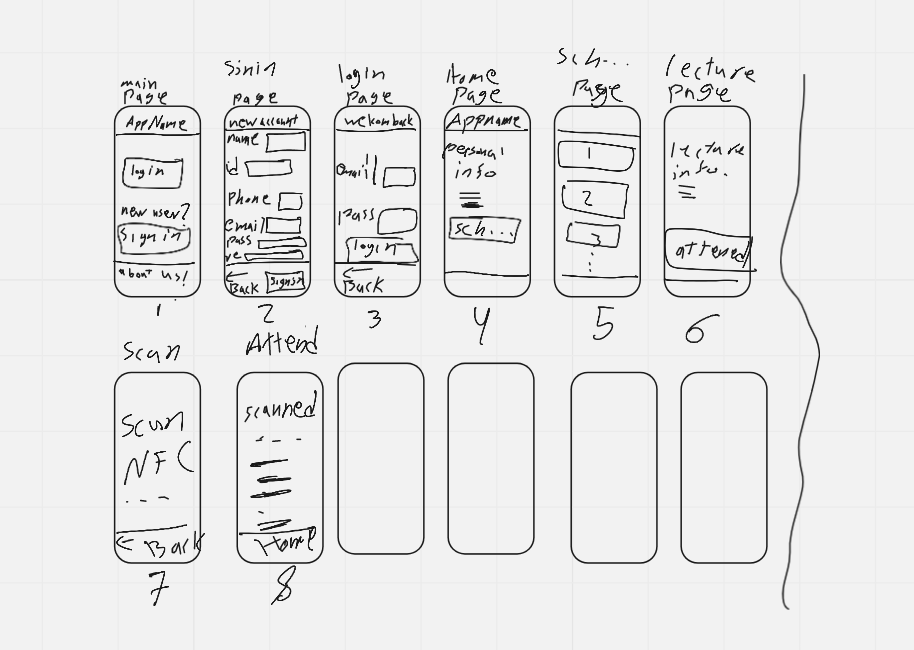 main
page
AppName
login
new user?
Sign in
about us!
1
Sinin
page
new account
name
id
Phone
email
pass
re
Back
signsn
2
login
page
welcomback
email
pass
login
Back
3
Home
page
Appname
personal
info
sch...
4
Sch...
Page
1
2
3
5
lecture
page
lecture
info.
attened
6
Scan
Scan
NFC
Back
7
Attend
scanned
Home
8